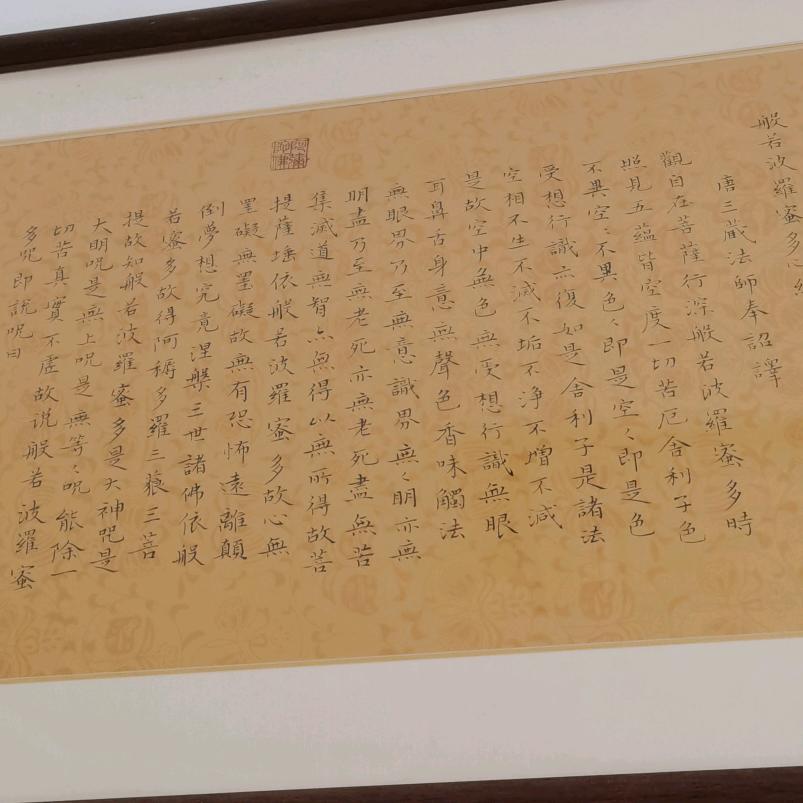 般若波羅蜜多心經
唐三蔵法師奉詔譯
觀自在菩薩行深般若波羅蜜多時
照見五蘊皆空度一切苦厄舍利子色
不異空〻不異色〻即是空〻即是色
受想行識亦復如是舍利子是諸法
空相不生不滅不垢不淨不增不減
是故空中無色無受想行識無眼
耳鼻舌身意無聲色香味觸法
無眼界乃至無意識界無〻明亦無
明盡乃至無老死亦無老死盡無苦
集滅道無智亦無得以無所得故菩
提薩埵依般若波羅蜜多故心無
罣礙無罣礙故無有恐怖遠離顛
倒夢想究竟涅槃三世諸佛依般
若蜜多故得阿耨多羅三藐三菩
提故知般若波羅蜜多是大神咒是
大明咒是無上咒是無等〻咒能除一
切苦真實不虛故说般若波羅蜜
多咒即説咒曰